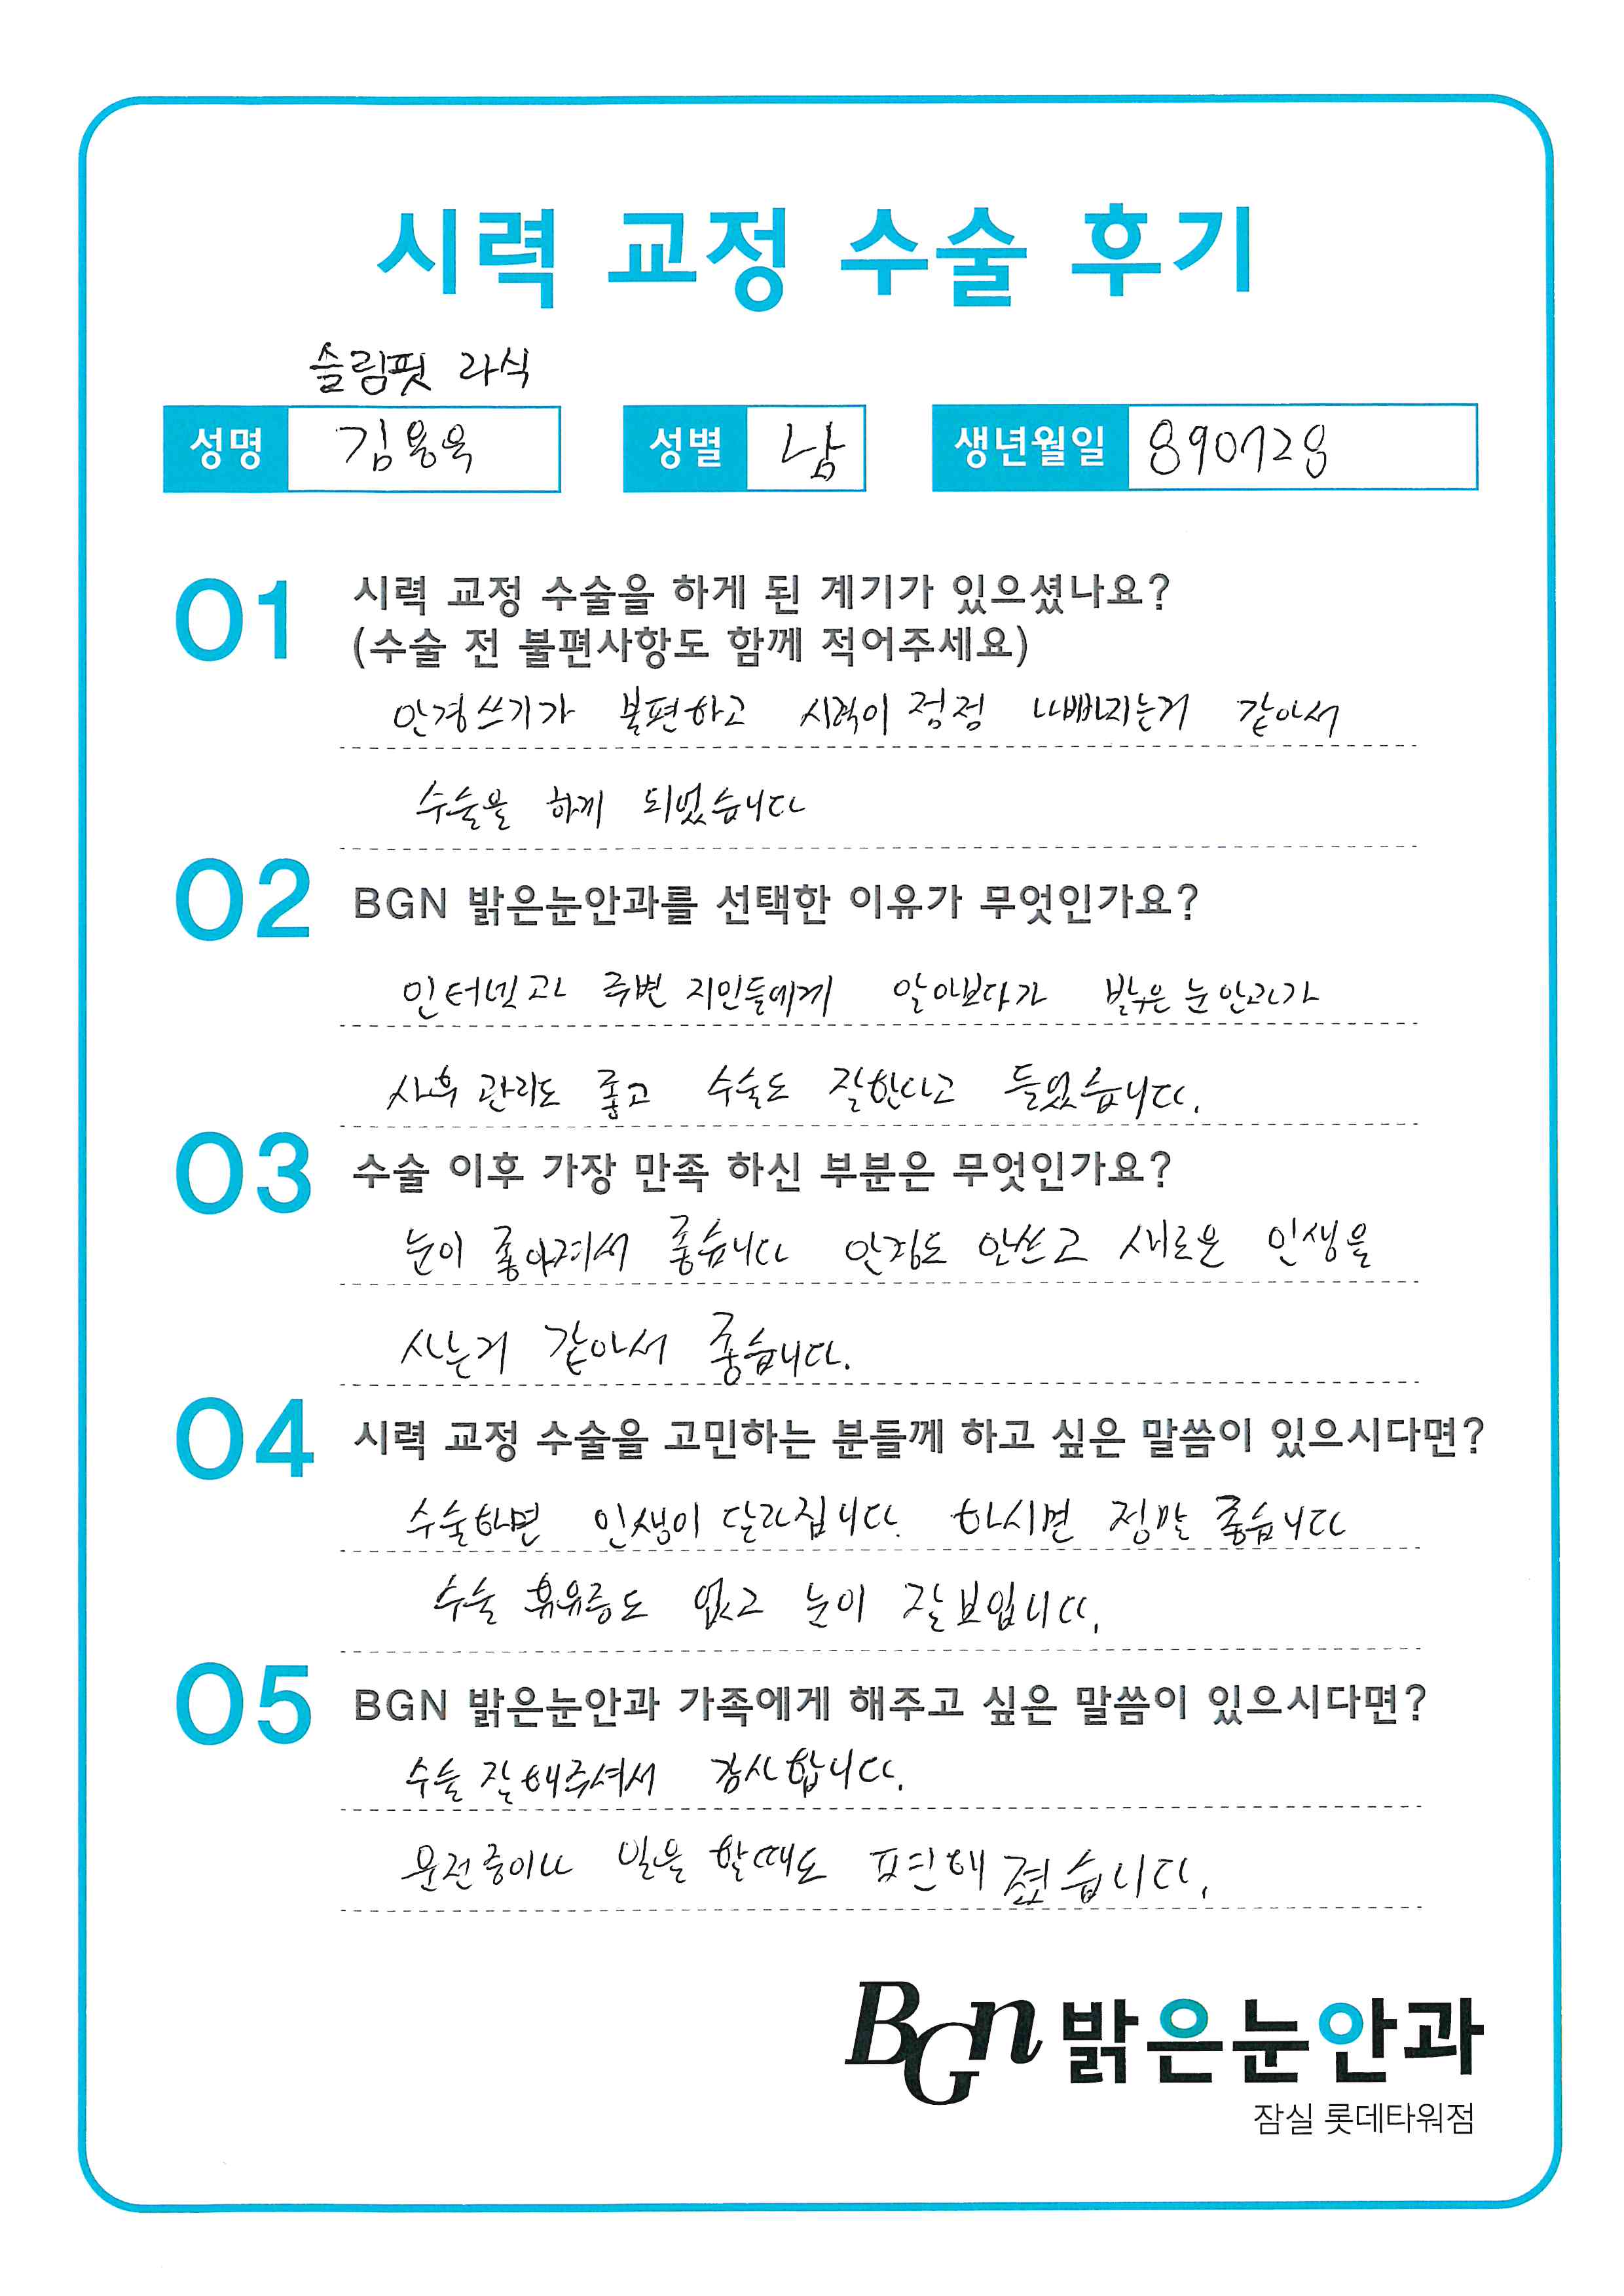 시력 교정 수술 후기
슬림핏 라식
성명 김용욱 성별 남 생년월일 890728
01 시력 교정 수술을 하게 된 계기가 있으셨나요?
(수술 전 불편사항도 함께 적어주세요)
안경쓰기가 불편하고 시력이 점점 나빠지는거 같아서
수술을 하게 되었습니다
02 BGN 밝은눈안과를 선택한 이유가 무엇인가요?
인터넷과 주변 지인들에게 알아보다가 밝은눈안과가
사후 관리도 좋고 수술도 잘한다고 들었습니다.
03 수술 이후 가장 만족 하신 부분은 무엇인가요?
눈이 좋아져서 좋습니다 안경도 안쓰고 새로운 인생을
사는거 같아서 좋습니다.
04 시력 교정 수술을 고민하는 분들께 하고 싶은 말씀이 있으시다면?
수술하면 인생이 달라집니다. 하시면 정말 좋습니다
수술 휴유증도 없고 눈이 잘보입니다.
05 BGN 밝은눈안과 가족에게 해주고 싶은 말씀이 있으시다면?
수술 잘해주셔서 감사합니다.
운전중이나 일을 할때도 편해졌습니다.
BGN 밝은눈안과
잠실 롯데타워점